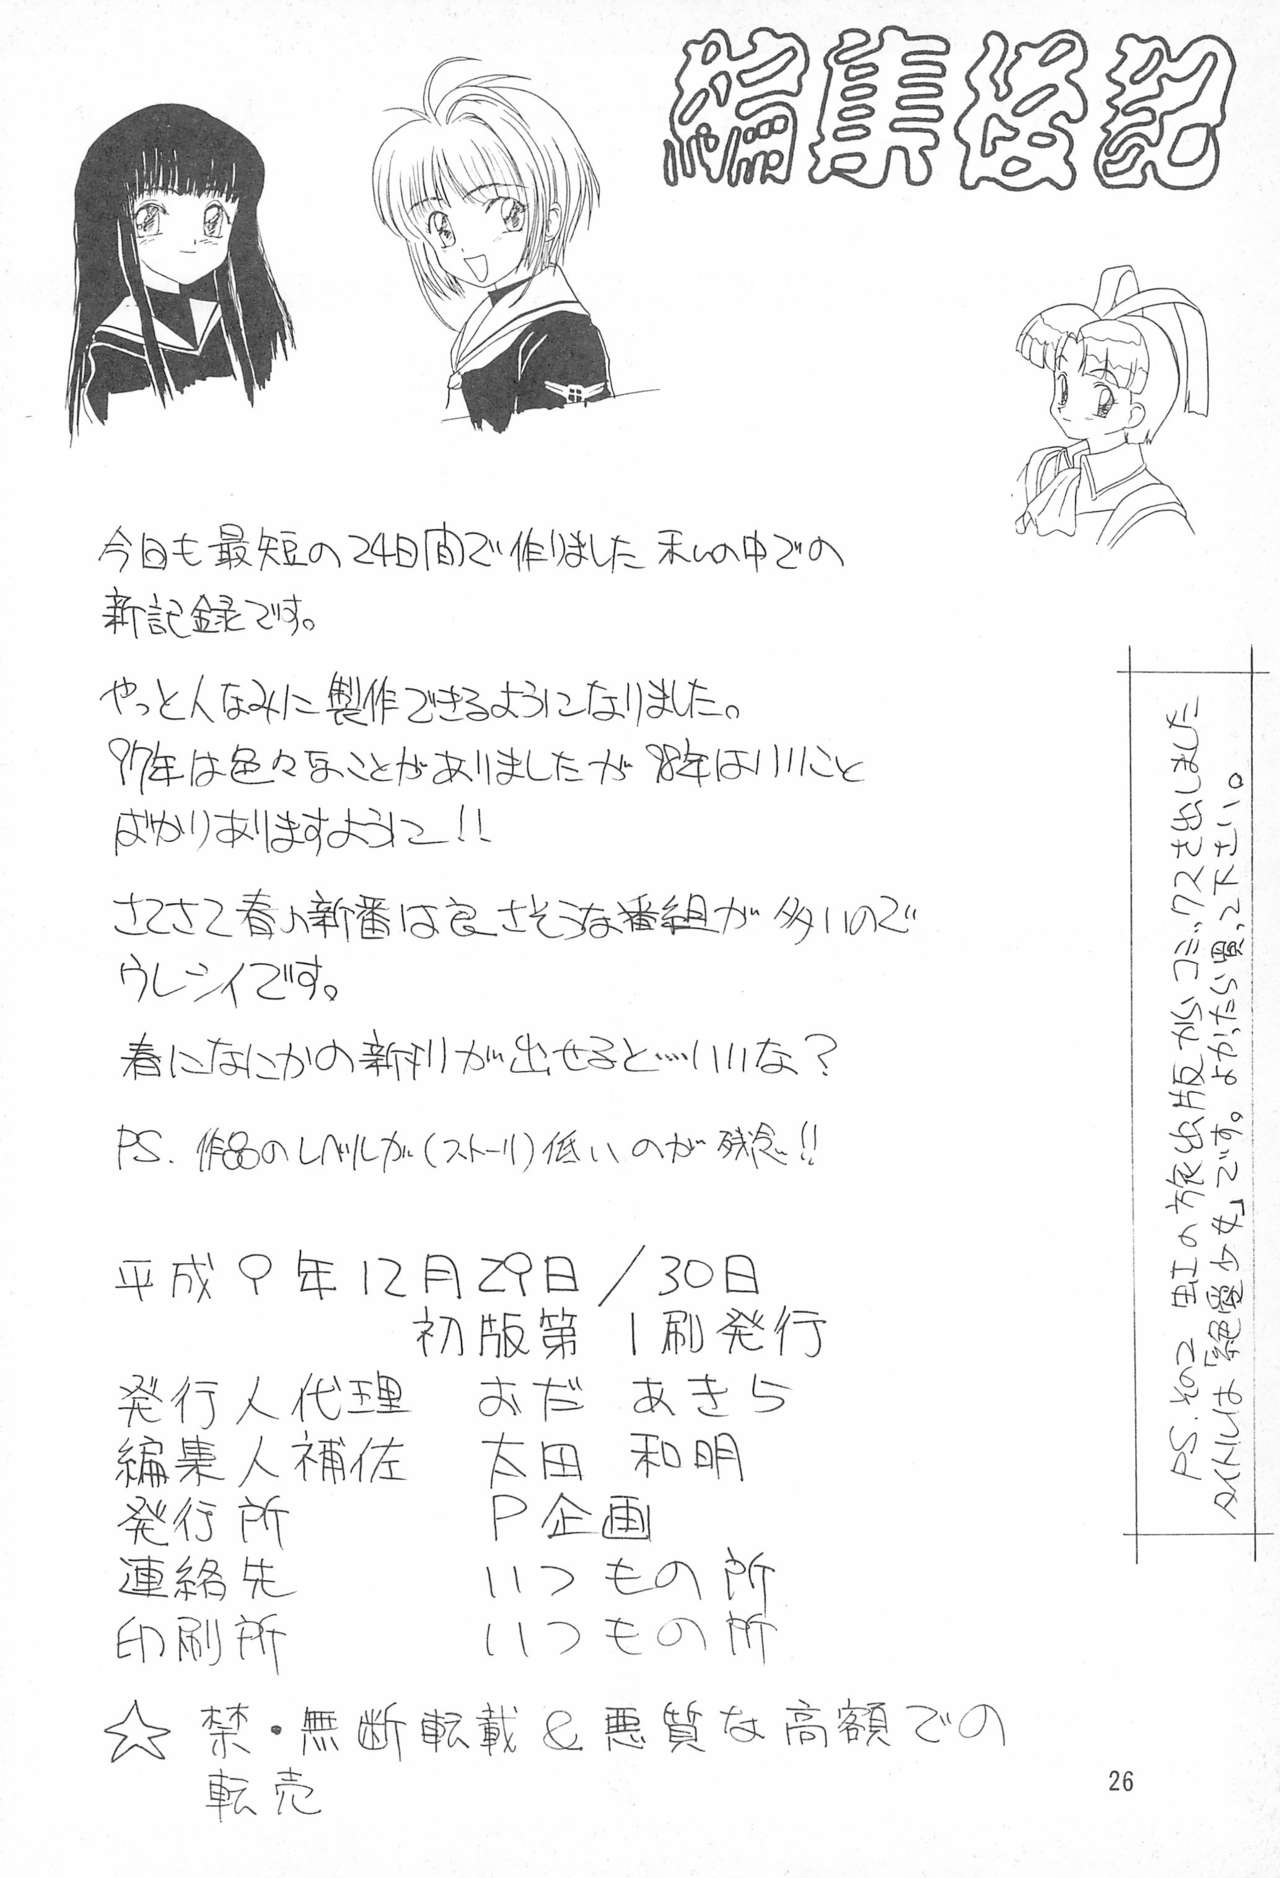 編集後記
今回も最短の24日間で作りました 私の中での
新記録です。
やっと人なみに製作できるようになりました。
97年は色々なことがありましたが 98年はいいこと
ばかりありますように!!
さてさて春の新番は良さそうな番組が多いので
ウレシイです。
春になにかの新刊が出せると‥‥いいな?
PS. 作品のレベルが(ストーリ)低いのが残念!!
PS.その2 虹の旅出版からコミックスを出しました
タイトルは「絶愛少女」です。よかったら買って下さい。
平成9年12月29日/30日
初版第1刷発行
発行人代理 おだ あきら
編集人補佐 太田 和明
発行所 P企画
連絡先 いつもの所
印刷所 いつもの所
☆ 禁・無断転載&悪質な高額での
転売
26